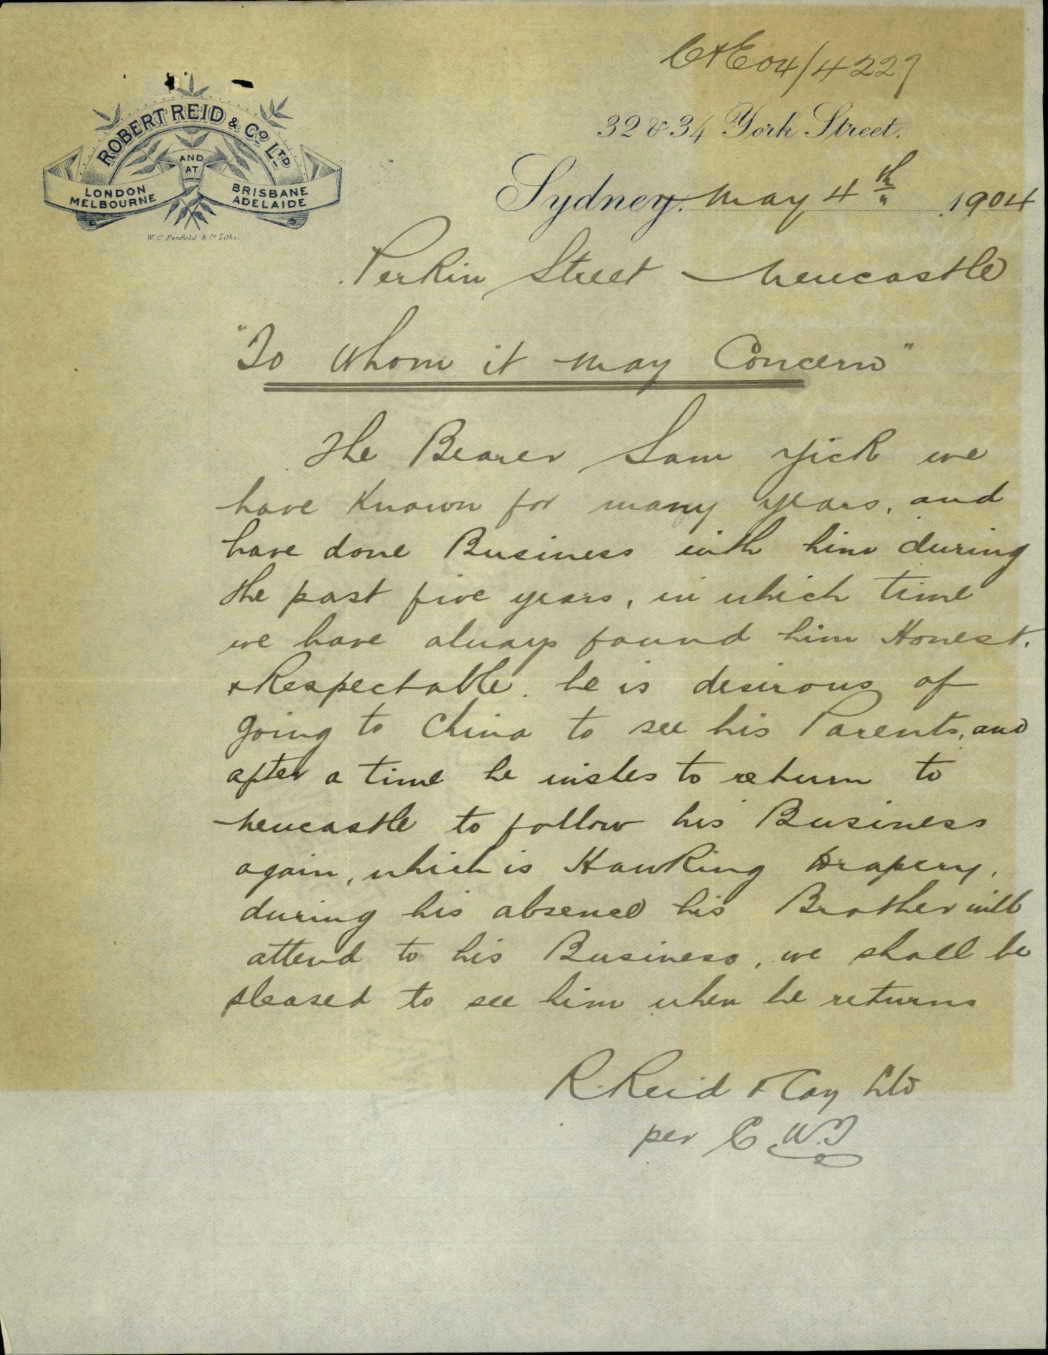 C&E 04/4227
ROBERT REID & CO LTD
AND
AT
LONDON
MELBOURNE
BRISBANE
ADELAIDE
32 & 34 York Street.
Sydney. May 4th 1904
Perkin Street Newcastle
"To Whom it may Concern"
The Bearer Sam Yick we
have Known for many years, and
have done Business with him during
the past five years, in which time
we have always found him Honest.
& Respectable. he is desirous of
going to China to see his Parents, and
after a time he wishes to return to
Newcastle to follow his Business
again, which is Hawking Drapery,
during his absence his Brother will
attend to his Business, we shall be
pleased to see him when he returns
R. Reid & Coy Ltd
per C W.